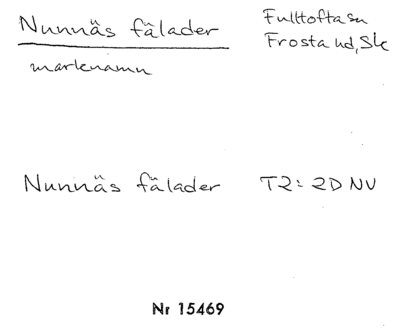 Nunnäs fälader
Fulltofta sn
Frosta hd, Sk
marknamn
Nunnäs fälader T2: 2D NV
Nr 15469